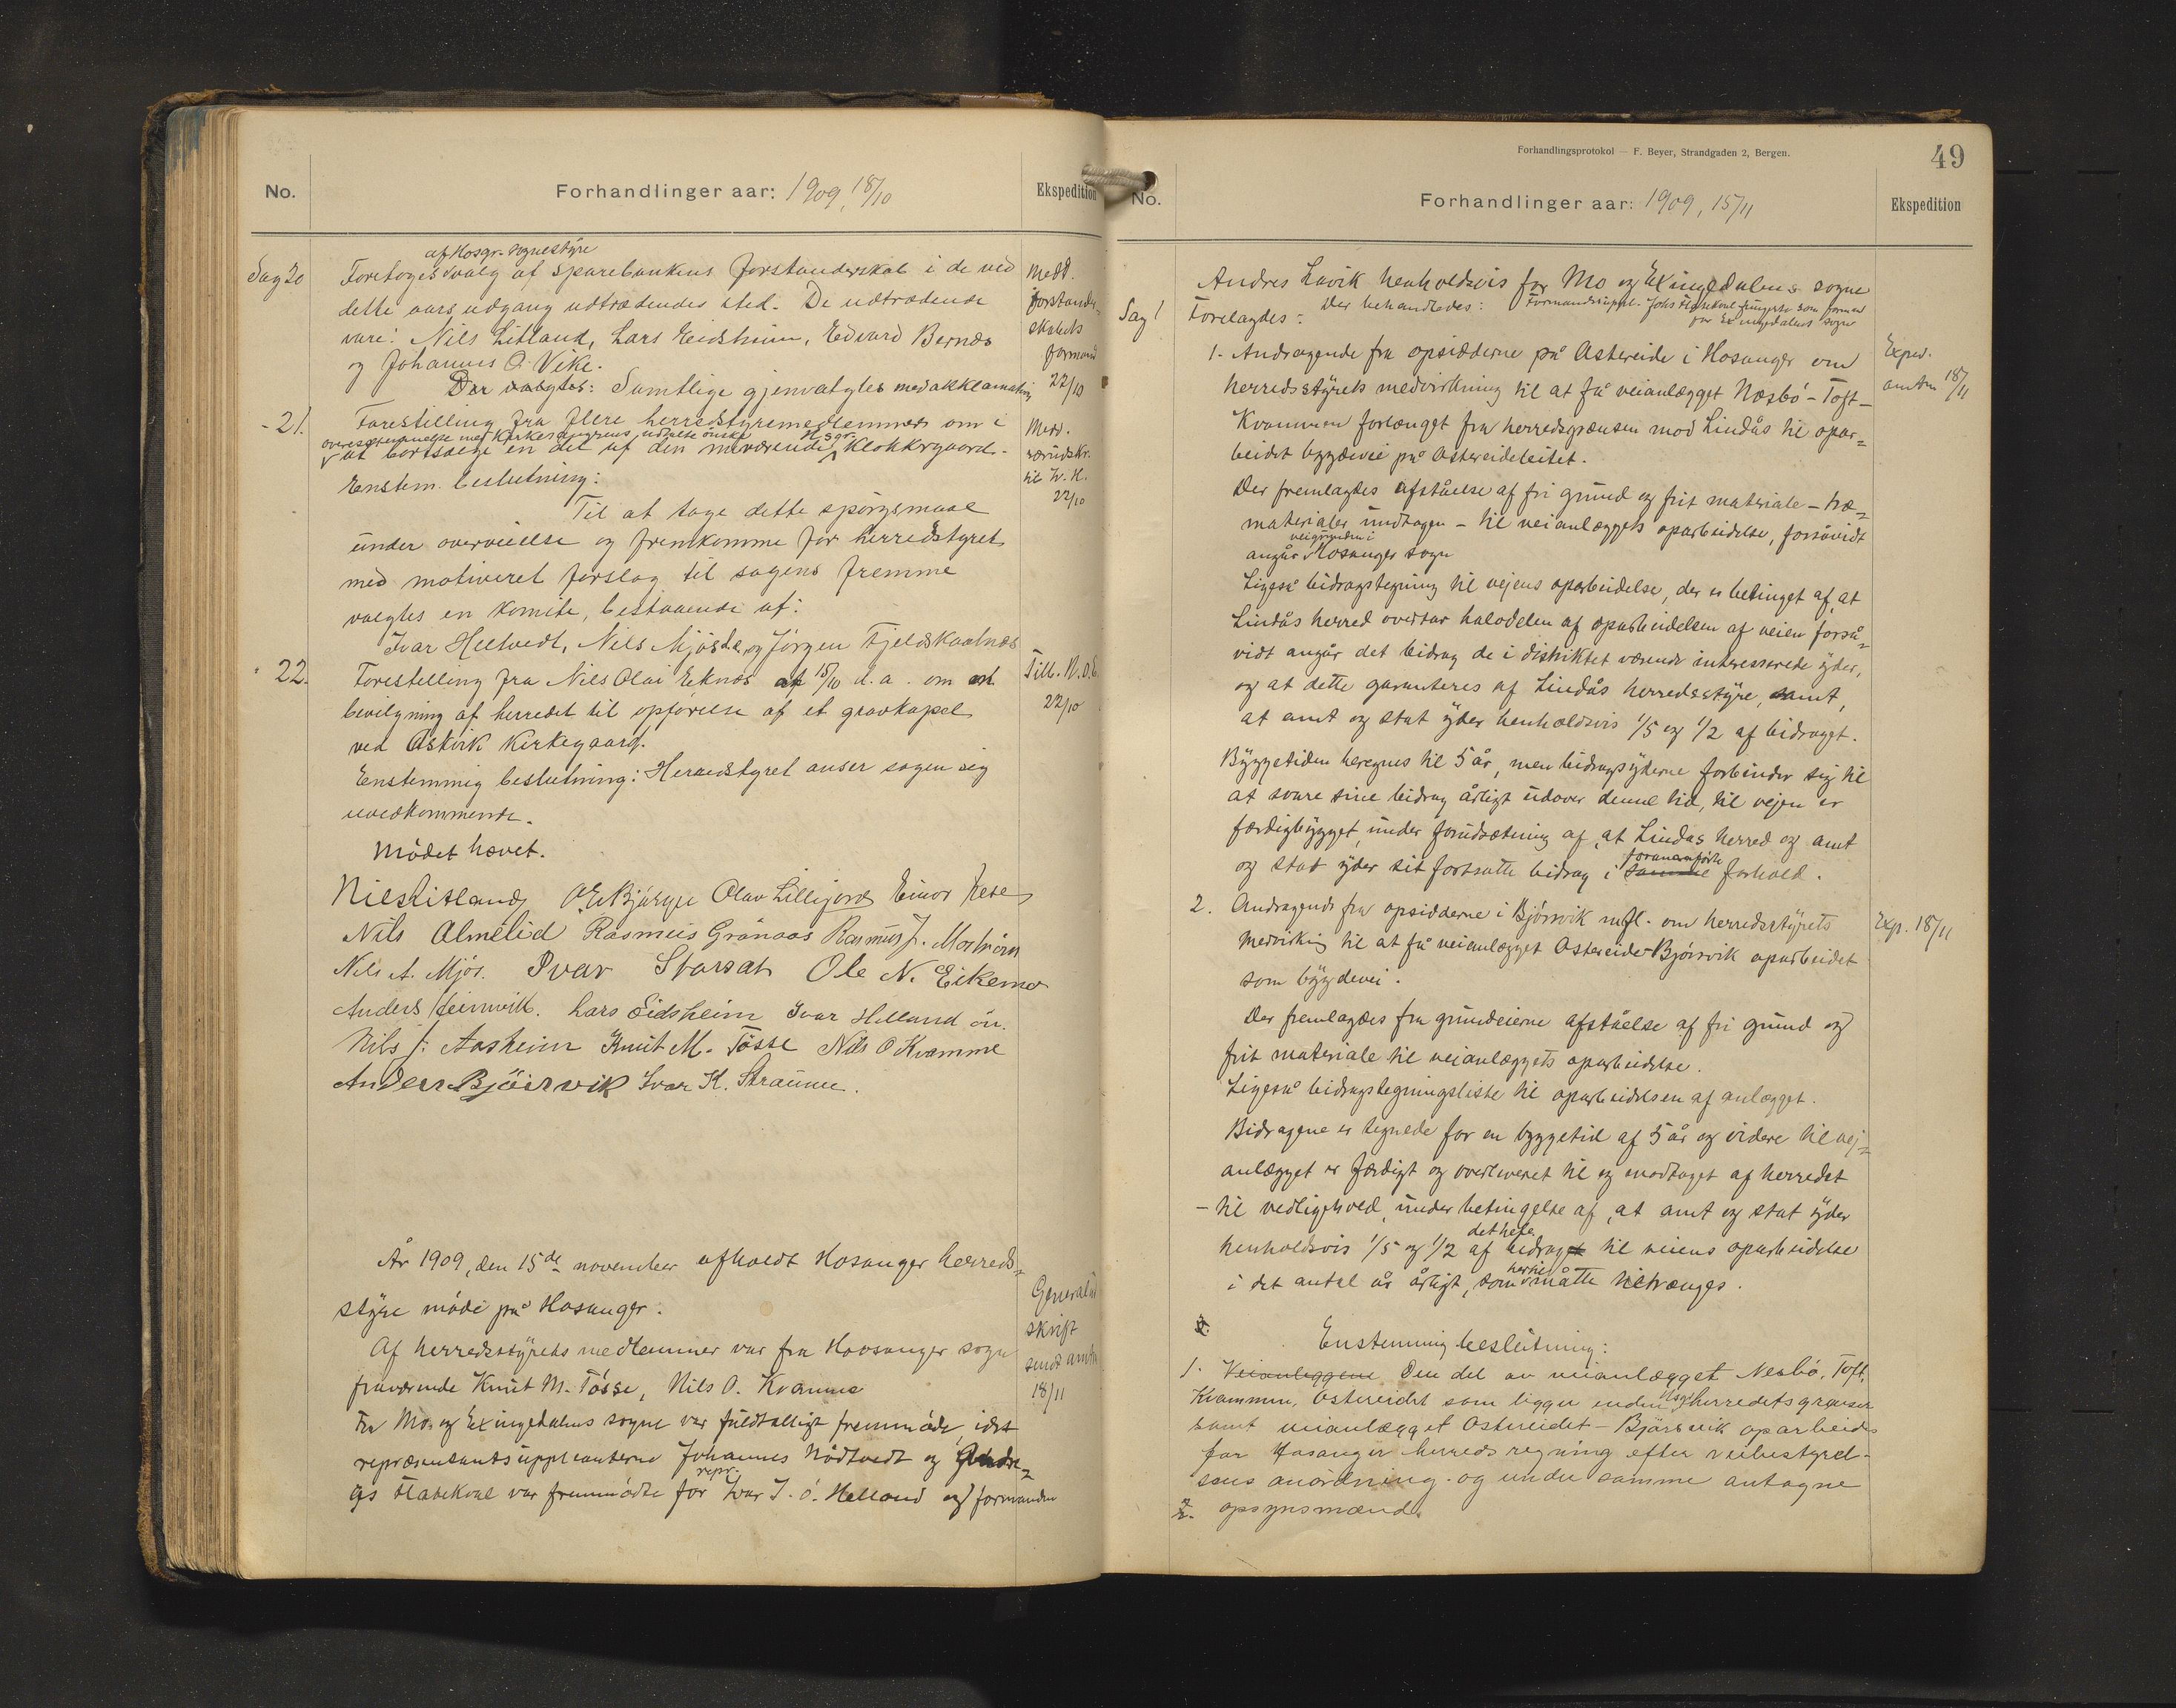 No.
Forhandlinger aar: 1909, 18/10
Ekspedition
af Hosgr. sognestyre
Sag 20
Foretoges valg af sparebankens forstanderskab i de ved
dette aars udgang udtrædendes sted. De udtrædende
vare: Nils Litland, Lars Eidsheim, Edvard Bernæs
og Johannes O. Vike.
Der valgtes: Samtlige gjenvalgtes med akklamation
Medd.
forstander-
skabets
formand
22/10
- 21.
Forestilling fra flere herredstyremedlemmer om i
overensstemmelse med Kirkedirigens udtalte ønske
at bortsælge en del af den nuværende Hsgr. Klokkergaard.
Enstem. beslutning:
Til at tage dette spørgsmaal
under overveielse og fremkomme for herredstyret
med motiveret forslag til sagens fremme
valgtes en komite, bestaaende af:
Ivar Heltvedt, Nils Mjøsde, og Jørgen Fjeldskaalnæs
Medd.
særudskr.
til I. H.
22/10
" 22.
Forestilling fra Nils Olai Eknæs af 15/10 d.a. om
bevilgning af herredet til opførelse af et gravkapel
ved Askvik Kirkegaard.
Enstemmig beslutning: Herredstyret anser sagen sig
uvedkommende.
Till. N.O.E
22/10
Mødet hævet.
Nils Litland O E Bjørge Olav Lillejord Einar Hese
Nils Almelid Rasmus Grånaas Rasmus J. Mostrøm
Nils A. Mjøs. Ivar Storsæt Ole N. Eikemo
Anders Heimvik. Lars Eidsheim Ivar Helland ön.
Nils J: Aasheim Knut M. Tösse Nils O Kvamme
Anders Bjöirsvik Ivar K. Straume.
År 1909, den 15de november afholdt Hosanger herreds=
styre møde på Hosanger.
Af herredsstyrets medlemmer var fra Hosanger sogn
fraværende Knut M. Tösse, Nils O. Kvamme
For Mo. og Exingedalens sogne var fuldtalligt fremmøde, idet
repræsentantsuppleanterne Johannes Nødtvedt og
Flatekval var fremmødte for repr. Ivar J. ö. Helland og formanden
Generalud
skrift
sendt amtm
18/11
Forhandlingsprotokol — F. Beyer, Strandgaden 2, Bergen.
49
No.
Forhandlinger aar: 1909, 15/11
Ekspedition
Andres Lavik henholdsvis for Mo og Exingedalens sogne
Formandsuppl. Johs Flatekval fungerte som formand
for Exingedalens sogn
Der behandledes:
Sag 1
Forelagdes:
1. Andragende fra opsidderne på Ostereide i Hosanger om
herredsstyrets medvirkning til at få veianlægget Næsbø - Toft -
Kvammen forlænget fra herredsgrænsen mod Lindås til opar=
beidet bygdevei på Ostereideleitet.
Der fremlagdes afståelse af fri grund og frit materiale - træ=
materialer undtagen - til veianlæggets oparbeidelse, forsåvidt
angår veigrunden i Hosanger sogn
Ligeså bidragstegning til vejens oparbeidelse, der er betinget af, at
Lindås herred overtar halvdelen af oparbeidelsen af veien forså=
vidt angår det bidrag de i distriktet værende interesserede yder,
og at dette garanteres af Lindås herredsstyre, samt,
at amt og stat yder henholdsvis 1/5 og 1/2 af bidraget.
Byggetiden beregnes til 5 år, men bidragsyderne forbinder sig til
at svare sine bidrag årligt udover denne tid, til vejen er
færdigbygget, under forudsætning af, at Lindås herred og amt
og stat yder sit fortsatte bidrag i foranførte forhold.
Exped.
amtm 18/11
2. Andragende fra opsidderne i Bjørsvik m.fl. om herredsstyrets
medvirking til at få veianlægget Ostereide-Bjørsvik oparbeidet
som bygdevei.
Der fremlagdes fra grundeierne afståelse af fri grund og
frit materiale til veianlæggets oparbeidelse.
Ligeså bidragstegningsliste til oparbeidelsen af anlægget.
Bidragene er tegnede for en byggetid af 5 år og videre til vej=
anlægget er færdigt og overleveret til og modtaget af herredet
- til vedligehold, under betingelse af, at amt og stat yder
henholdsvis 1/5 og 1/2 af det hele bidrag til veiens oparbeidelse
i det antal år årligt, som hertil måtte tiltrænges.
Exp. 18/11
Enstemmig beslutning:
1. Veianleggene Den del av veianlægget Nesbö, Toft,
Kvammen, Ostereidet som ligger inden Hsgr herredets grænser
samt veianlægget Ostereidet - Bjørsvik oparbeides
for Hosanger herreds regning efter veibestyrel-
sens anordning og under samme antagne
2. opsynsmænd.